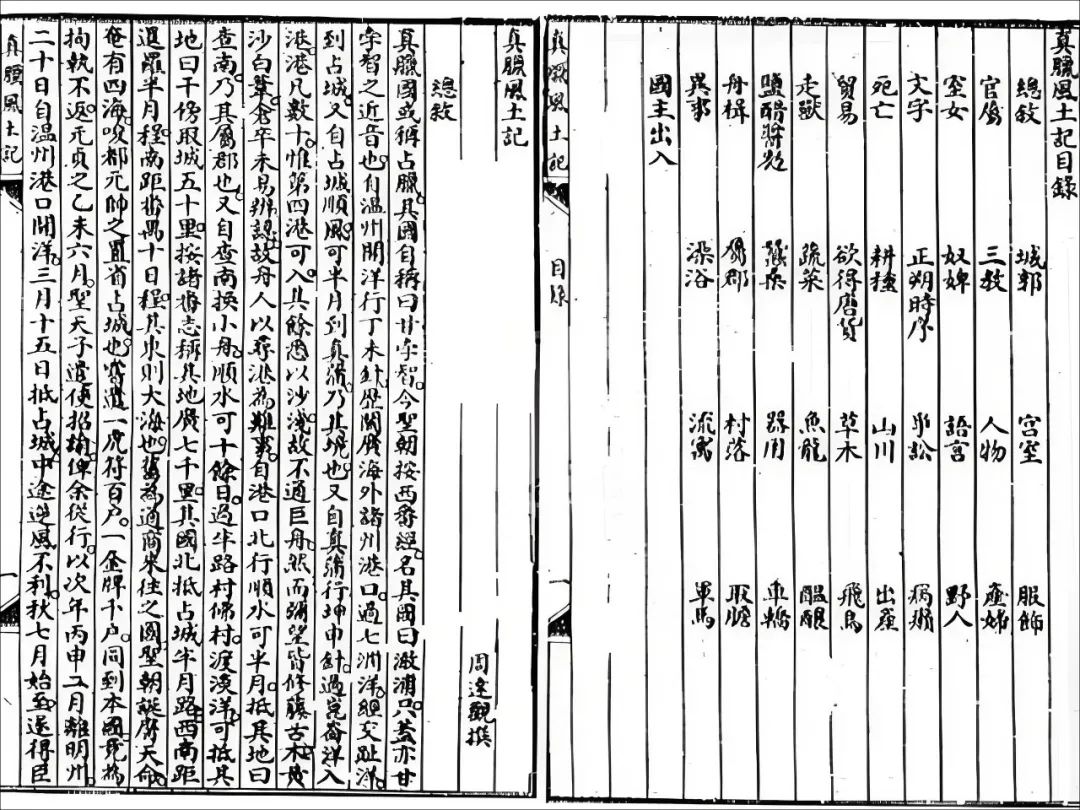 真臘風土記目錄
總敘 城郭 宮室 服飾
官屬 三教 人物 產婦
室女 奴婢 語言 野人
文字 正朔時序 爭訟 病癩
死亡 耕種 山川 出產
貿易 欲得唐貨 草木 飛鳥
走獸 蔬菜 魚龍 醞釀
鹽醋醬麪 蠶桑 器用 車轎
舟楫 屬郡 村落 取膽
異事 澡浴 流寓 軍馬
國主出入
真臘風土記 目錄 一
真臘風土記
周達觀撰
總敘
真臘國或稱占臘其國自稱曰甘孛智今聖朝按西番經名其國曰澉浦只蓋亦甘
孛智之近音也自溫州開洋行丁未針歷閩廣海外諸州港口過七洲洋經交趾洋
到占城又自占城順風可半月到真蒲乃其境也又自真蒲行坤申針過崑崙洋入
港港凡數十惟第四港可入其餘悉以沙淺故不通巨舟然而彌望皆修藤古木黃
沙白葦倉卒未易辨認故舟人以尋港為難事自港口北行順水可半月抵其地曰
查南乃其屬郡也又自查南換小舟順水可十餘日過半路村佛村渡淡洋可抵其
地曰干傍取城五十里按諸番志稱其地廣七千里其國北抵占城半月路西南距
暹羅半月程南距番禺十日程其東則大海也舊為通商來往之國聖朝誕膺天命
奄有四海唆都元帥之置省占城也嘗遣一虎符百戶一金牌千戶同到本國竟為
拘執不返元貞之乙未六月聖天子遣使招諭俾余從行以次年丙申二月離明州
二十日自溫州港口開洋三月十五日抵占城中途逆風不利秋七月始至遂得臣
真臘風土記 一